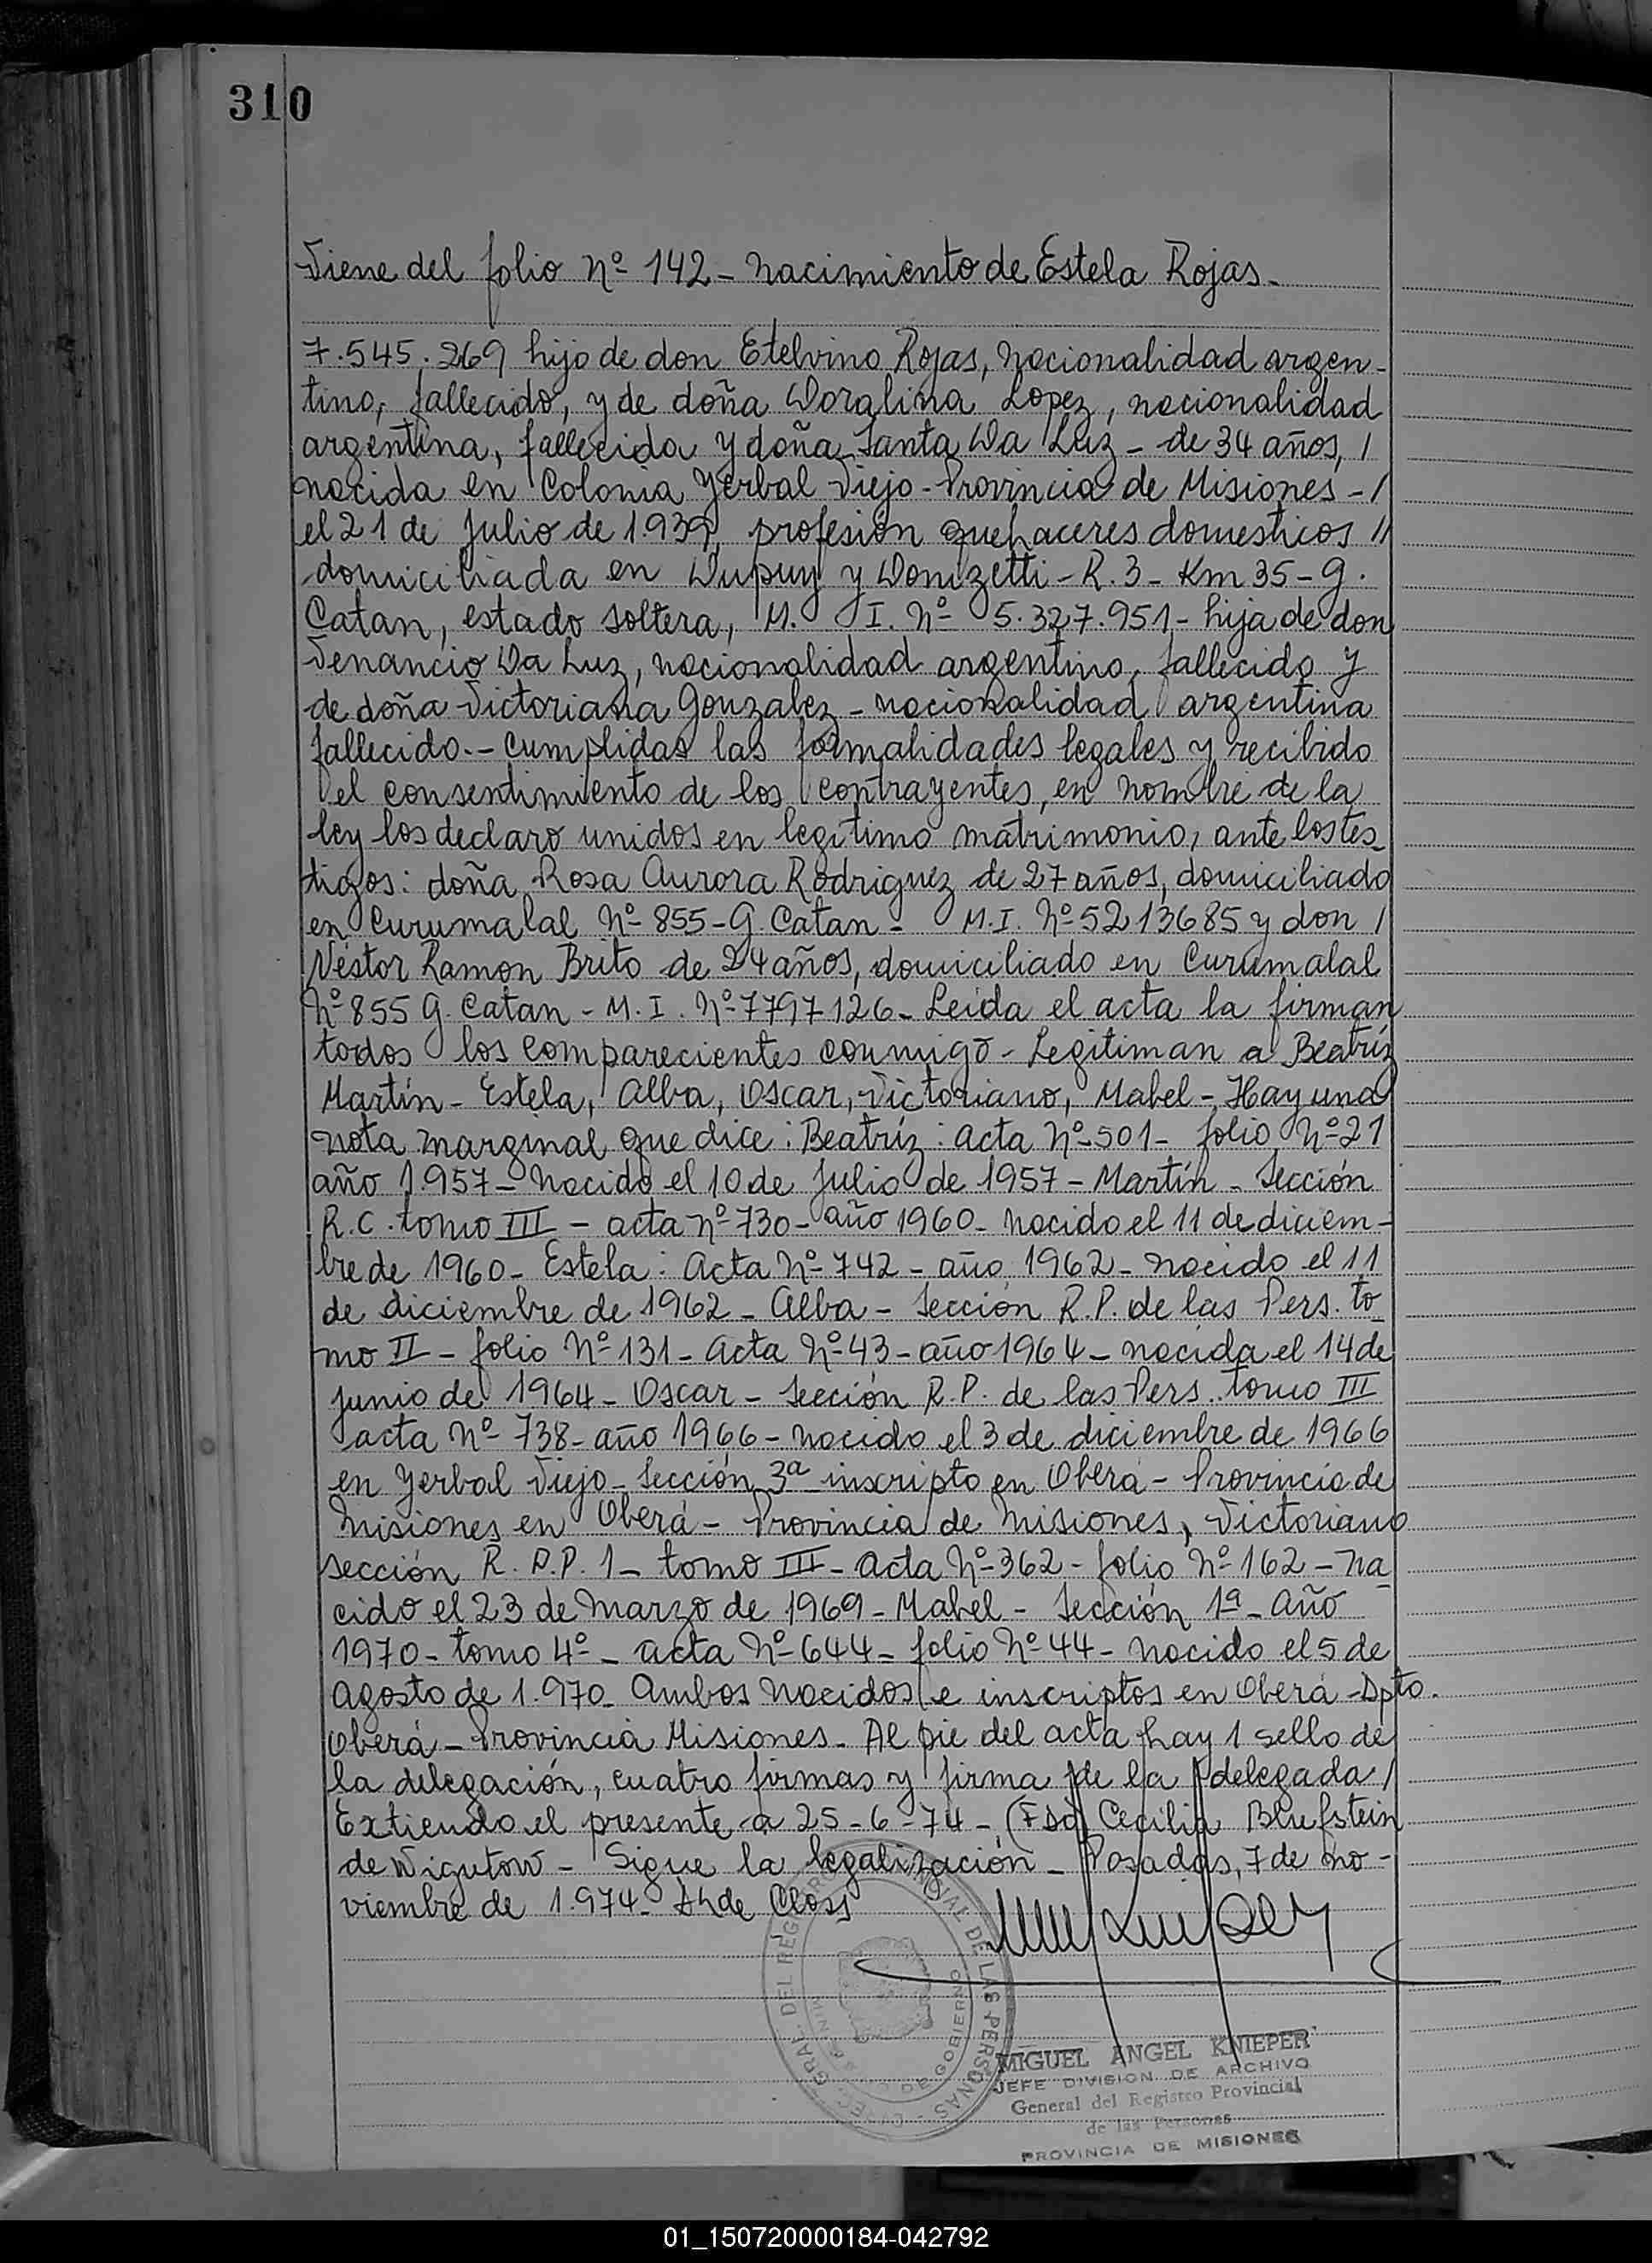 310
Viene del folio Nº 142 - Nacimiento de Estela Rojas.-
7.545.269 hijo de don Etelvino Rojas, nacionalidad argen-
tino, fallecido, y de doña Doralina Lopez, nacionalidad
argentina, fallecida y doña Santa Da Luz - de 34 años, /
nacida en Colonia Yerbal Viejo - Provincia de Misiones - /
el 21 de Julio de 1.939, profesión quehaceres domesticos //
domiciliada en Dupuy y Donizetti - R. 3 - Km 35 - G.
Catan, estado soltera, M. I. Nº 5.327.951 - hija de don
Venancio Da Luz, nacionalidad argentino, fallecido y
de doña Victoriana Gonzalez - nacionalidad argentina
fallecido.- Cumplidas las formalidades legales y recibido
el consentimiento de los contrayentes, en nombre de la
ley los declaro unidos en legítimo matrimonio, ante los tes-
tigos: doña Rosa Aurora Rodriguez de 27 años, domiciliado
en Curumalal Nº 855 - G. Catan - M.I. Nº 5213685 y don /
Néstor Ramon Brito de 24 años, domiciliado en Curumalal
Nº 855 G. Catan - M. I. Nº 7797126 - Leída el acta la firman
todos los comparecientes conmigo - Legitiman a Beatríz
Martín - Estela, Alba, Oscar, Victoriano, Mabel - Hay una
nota marginal que dice: Beatríz: acta Nº 501 - folio Nº 21
año 1.957 - Nacido el 10 de Julio de 1957 - Martín - Sección
R.C. tomo III - acta Nº 730 - año 1960 - Nacido el 11 de diciem-
bre de 1960 - Estela: Acta Nº 742 - año 1962 - Nacido el 11
de diciembre de 1962 - Alba - Sección R.P. de las Pers. to-
mo II - folio Nº 131 - Acta Nº 43 - año 1964 - nacida el 14 de
junio de 1964 - Oscar - Sección R.P. de las Pers. tomo III
acta Nº 738 - año 1966 - Nacido el 3 de diciembre de 1966
en Yerbal Viejo - Sección 3ª inscripto en Oberá - Provincia de
Misiones en Oberá - Provincia de Misiones, Victoriano
sección R. P. P. 1 - tomo III - Acta Nº 362 - folio Nº 162 - Na-
cido el 23 de Marzo de 1969 - Mabel - Sección 1ª - Año
1970 - tomo 4º - acta Nº 644 - folio Nº 44 - Nacido el 5 de
Agosto de 1.970 - Ambos Nacidos e inscriptos en Oberá - Dpto.
Oberá - Provincia Misiones - Al pie del acta hay 1 sello de
la delegación, cuatro firmas y firma de la delegada /
Extiendo el presente a 25-6-74 - (Fdo) Cecilia Blufstein
de Wigutow - Sigue la legalización - Posadas, 7 de no-
viembre de 1.974 - de Closs
MIGUEL ANGEL KNIEPER
JEFE DIVISION DE ARCHIVO
General del Registro Provincial
de las Personas
PROVINCIA DE MISIONES
01_150720000184-042792